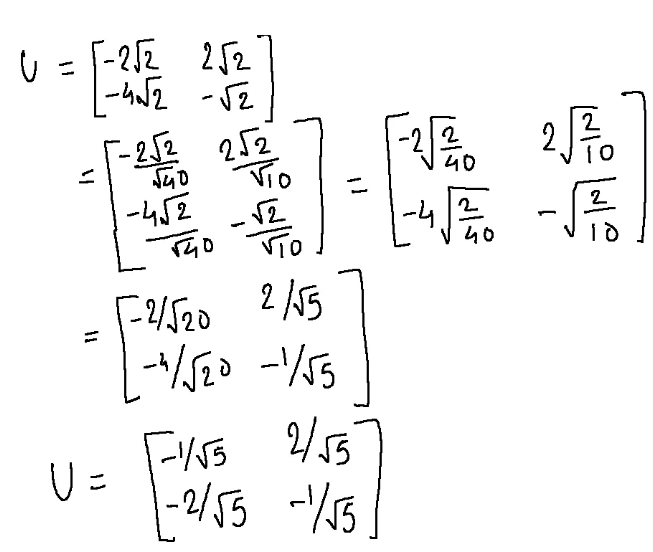 U = [-2√2 2√2
-4√2 -√2]
= [-2√2/√40 2√2/√10
-4√2/√40 -√2/√10] = [-2√(2/40) 2√(2/10)
-4√(2/40) -√(2/10)]
= [-2/√20 2/√5
-4/√20 -1/√5]
U = [-1/√5 2/√5
-2/√5 -1/√5]